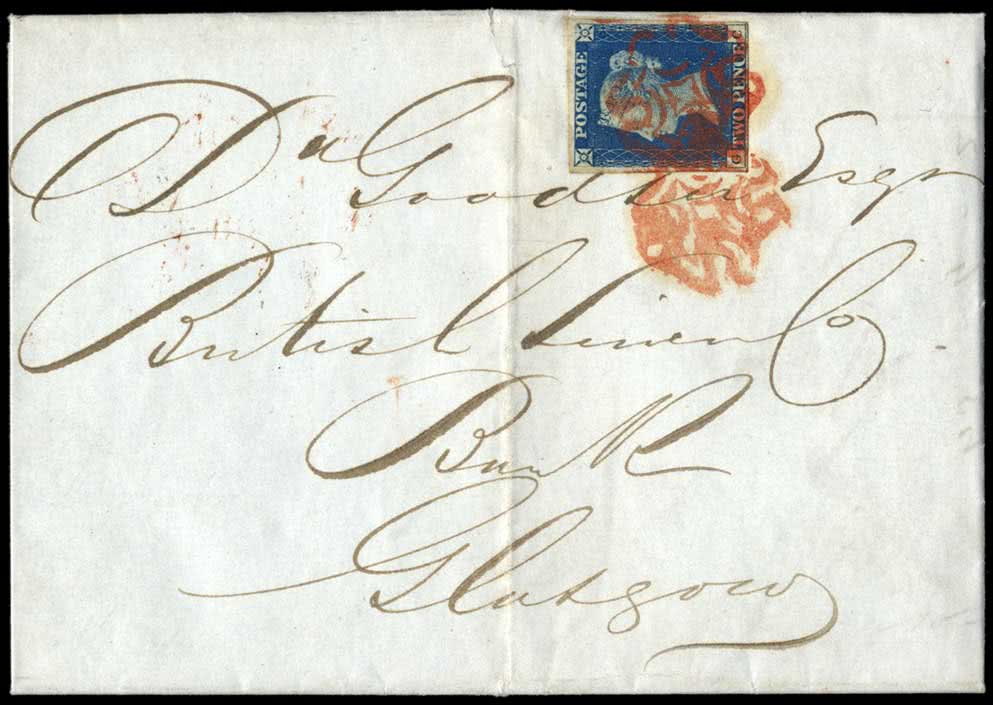 POSTAGE
TWO PENCE
G C
Esqr
British Linen Co
Bank
Glasgow